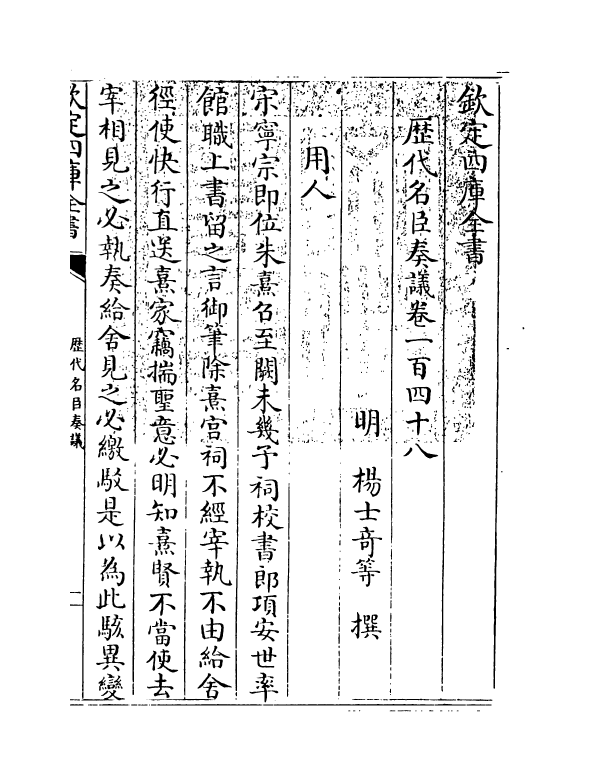 欽定四庫全書
歴代名臣奏議卷一百四十八
明 楊士竒等 撰
用人
宋寧宗即位朱熹召至闕未幾予祠校書郎項安世率
館職上書留之言御筆除熹宫祠不經宰執不由給舍
徑使快行直送熹家竊揣聖意必明知熹賢不當使去
宰相見之必執奏給舍見之必繳駁是以為此駭異變
欽定四庫全書
歴代名臣奏議